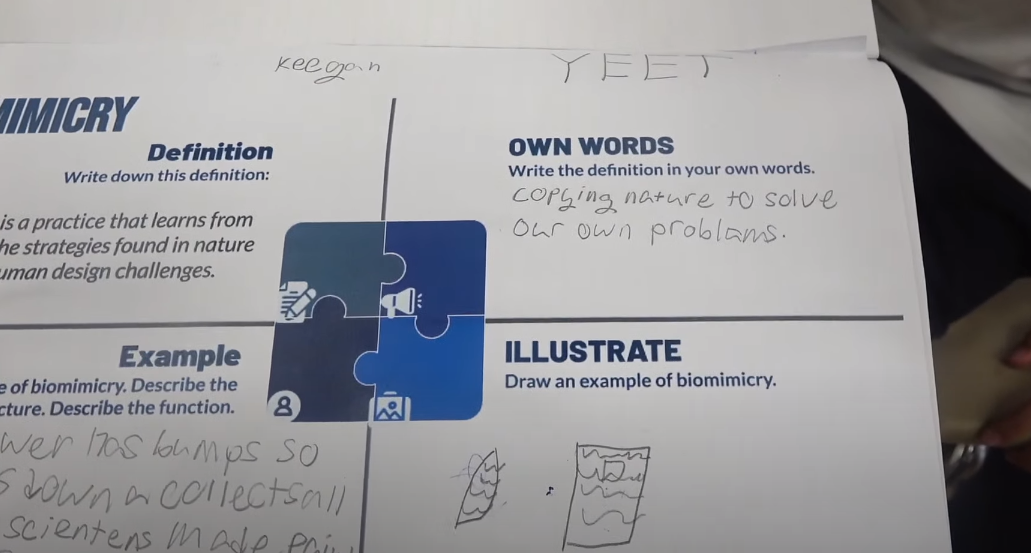 Keegan
YEET
MIMICRY
Definition
Write down this definition:
is a practice that learns from
he strategies found in nature
uman design challenges.
OWN WORDS
Write the definition in your own words.
copying nature to solve
our own problams.
Example
e of biomimicry. Describe the
cture. Describe the function.
wer has bumps so
down a collects all
scientens made
ILLUSTRATE
Draw an example of biomimicry.